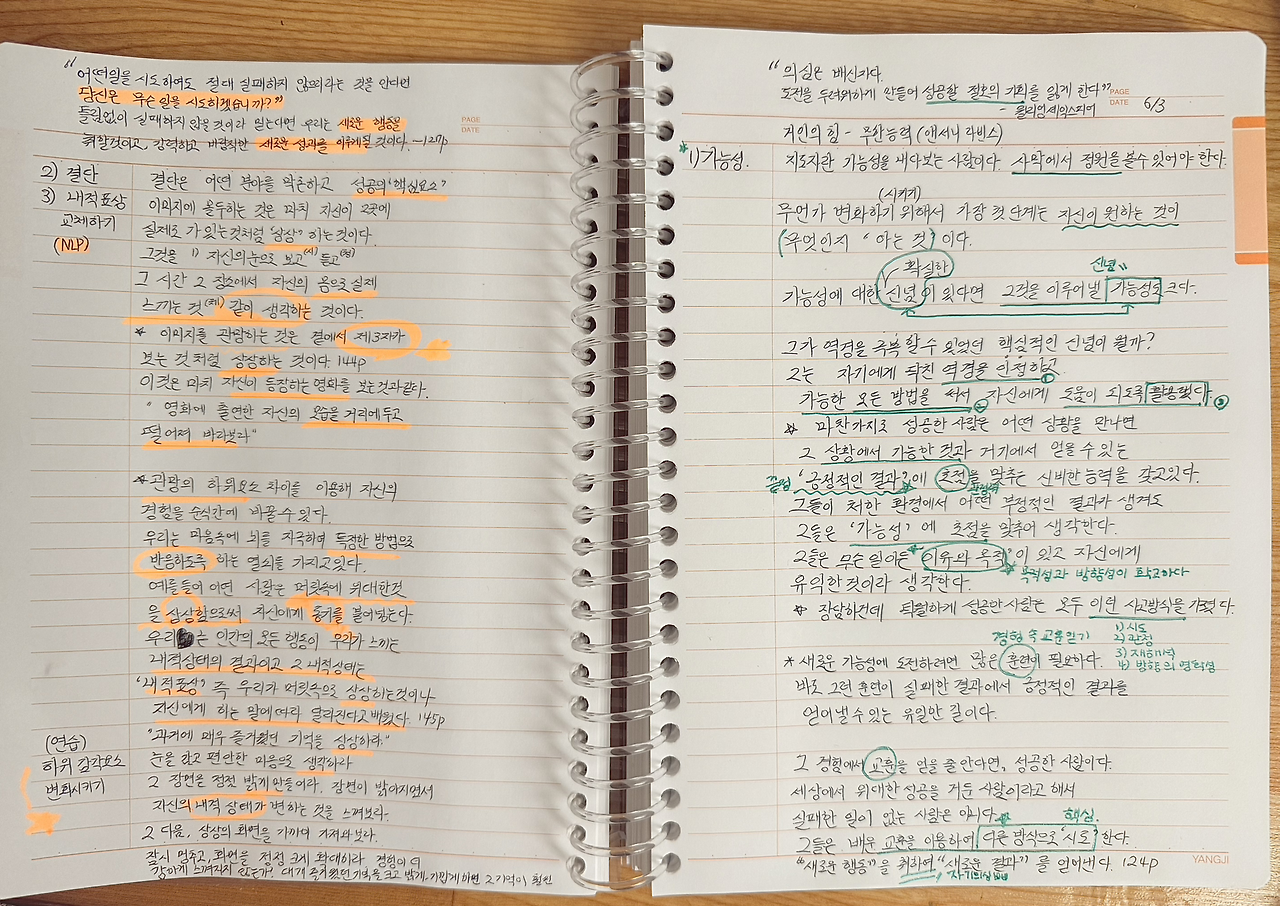 "어떤일을 시도하여도 절대 실패하지 않으리라는 것을 안다면
당신은 무슨 일을 시도하겠습니까?"
틀림없이 실패하지 않을 것이라 믿는다면 우리는 새로운 행동을
취할것이고, 강력하고 바람직한 새로운 성과를 이루게될 것이다. -127p
PAGE
DATE
2) 결단
결단은 어떤 분야를 막론하고 성공의 '핵심요소'
3) 내적표상
교체하기
(NLP)
이미지에 몰두하는 것은 마치 자신이 그곳에
실제로 가 있는것처럼 '상상' 하는 것이다.
그것을 1) 자신의 눈으로 보고(시) 듣고(청)
그 시간 그 장소에서 자신의 몸으로 실제
느끼는 것(체) 같이 생각하는 것이다.
* 이미지를 관람하는 것은 곁에서 제3자가
보는 것 처럼 상상하는 것이다. 144p
이것은 마치 자신이 등장하는 영화를 보는것과 같다.
" 영화에 출연한 자신의 모습을 거리에 두고
떨어져 바라보라"
* 관람의 하위요소 차이를 이용해 자신의
경험을 순식간에 바꿀 수 있다.
우리는 마음속에 뇌를 자극하여 특정한 방법으로
반응하도록 하는 열쇠를 가지고있다.
예를들어 어떤 사람은 머릿속에 위대한것
을 상상함으로써 자신에게 용기를 불어넣는다.
우리는 인간의 모든 행동이 우리가 느끼는
내적상태의 결과이고 그 내적상태는
'내적표상' 즉 우리가 머릿속으로 상상하는것이나
자신에게 하는 말에 따라 달라진다고 배웠다. 145p
(연습)
하위 감각요소
변화시키기
"과거에 매우 즐거웠던 기억을 상상하라."
눈을 감고 편안한 마음으로 생각하라
그 장면을 점점 밝게 만들어라. 장면이 밝아지면서
자신의 내적 상태가 변하는 것을 느껴보라.
그 다음, 상상의 화면을 가까이 가져와보라.
잠시 멈추고, 화면을 점점 크게 확대하라 경험이 더
강하게 느껴지지 않는가? 대개 즐거웠던 기억을 크고 밝게, 가깝게 하면 그 기억이 훨씬
"의심은 배신자다.
도전을 두려워하게 만들어 성공할 절호의 기회를 잃게 한다"
- 윌리엄 셰익스피어
PAGE
DATE 6/3
거인의 힘 - 무한능력 (앤서니 라빈스)
*1) 가능성.
지도자란 가능성을 내다보는 사람이다. 사막에서 정원을 볼수 있어야 한다.
(시키기)
무언가 변화하기 위해서 가장 첫 단계는 자신이 원하는 것이
(무엇인지 " 아는 것) 이다.
확실한
신념
가능성에 대한 신념이 있다면 그것을 이루어낼 가능성도 크다.
그가 역경을 극복 할 수 있었던 핵심적인 신념이 뭘까?
그는 자기에게 닥친 역경을 인정하고 ①
가능한 모든 방법을 써서 ② 자신에게 도움이 되도록 활용했다. ③
* 마찬가지로 성공한 사람은 어떤 상황을 만나면
그 상황에서 가능한 것과 거기에서 얻을 수 있는
'긍정적인 결과'에 초점을 맞추는 신비한 능력을 갖고있다.
그들이 처한 환경에서 어떤 부정적인 결과가 생겨도
그들은 '가능성' 에 초점을 맞추어 생각한다.
그들은 무슨 일이든 '이유와 목적'이 있고 자신에게
유익한 것이라 생각한다.
* 목적성과 방향성이 확고하다
* 장담하건데 탁월하게 성공한 사람은 모두 이런 사고방식을 가졌다.
경험 속 교훈얻기
1) 시도
2) 관점
3) 재해석
4) 방향의 명확성
* 새로운 가능성에 도전하려면 많은 훈련이 필요하다.
바로 그런 훈련이 실패한 결과에서 긍정적인 결과를
얻어낼 수 있는 유일한 길이다.
그 경험에서 교훈을 얻을 줄 안다면, 성공한 사람이다.
세상에서 위대한 성공을 거둔 사람이라고 해서
실패한 일이 없는 사람은 아니다.
핵심.
그들은 배운 교훈을 이용하여 다른 방식으로 '시도' 한다.
"새로운 행동"을 취하여 "새로운 결과" 를 얻어낸다. 124p
YANGJI